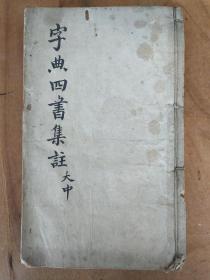 字典四書集註大中